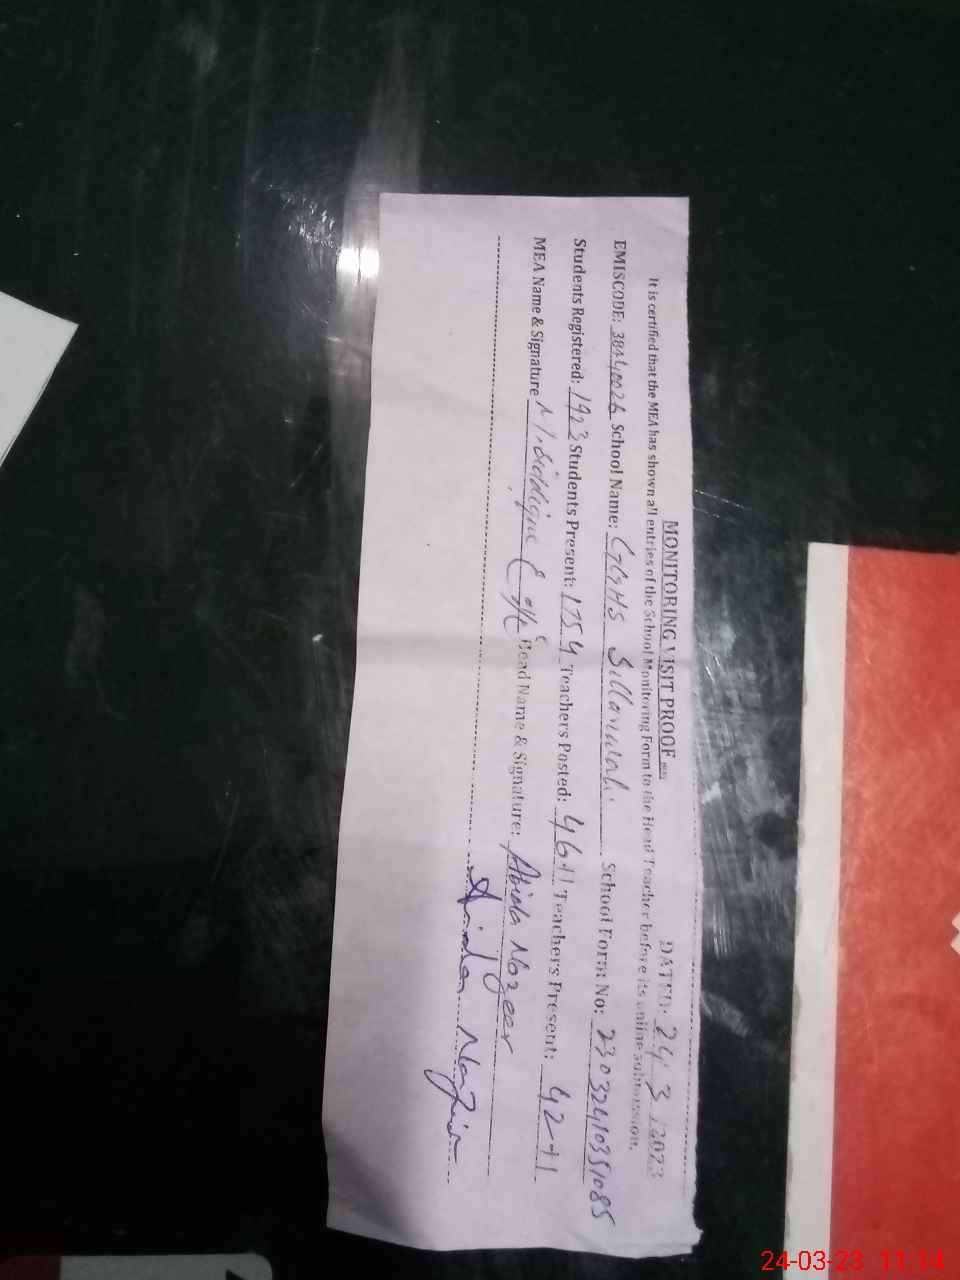 MONITORING VISIT PROOF
DATED: 24/3/2023
It is certified that the MEA has shown all entries of the School Monitoring Form to the Head Teacher before its online submission.
EMISCODE: 38440026 School Name: GGHS Sillanwali. School Form No: 23032410351085
Students Registered: 1923 Students Present: 1754 Teachers Posted: 46+1 Teachers Present: 42+1
MEA Name & Signature M. Siddique Head Name & Signature: Abida Nazeer
Abida Nazir
24-03-23 11:14